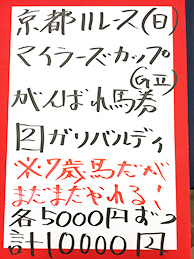 京都11レース(日)
マイラーズカップ
(GⅡ)
がんばれ馬券
2 ガリバルディ
※7歳馬だが
まだまだやれる!
各5000円ずつ
計10000円